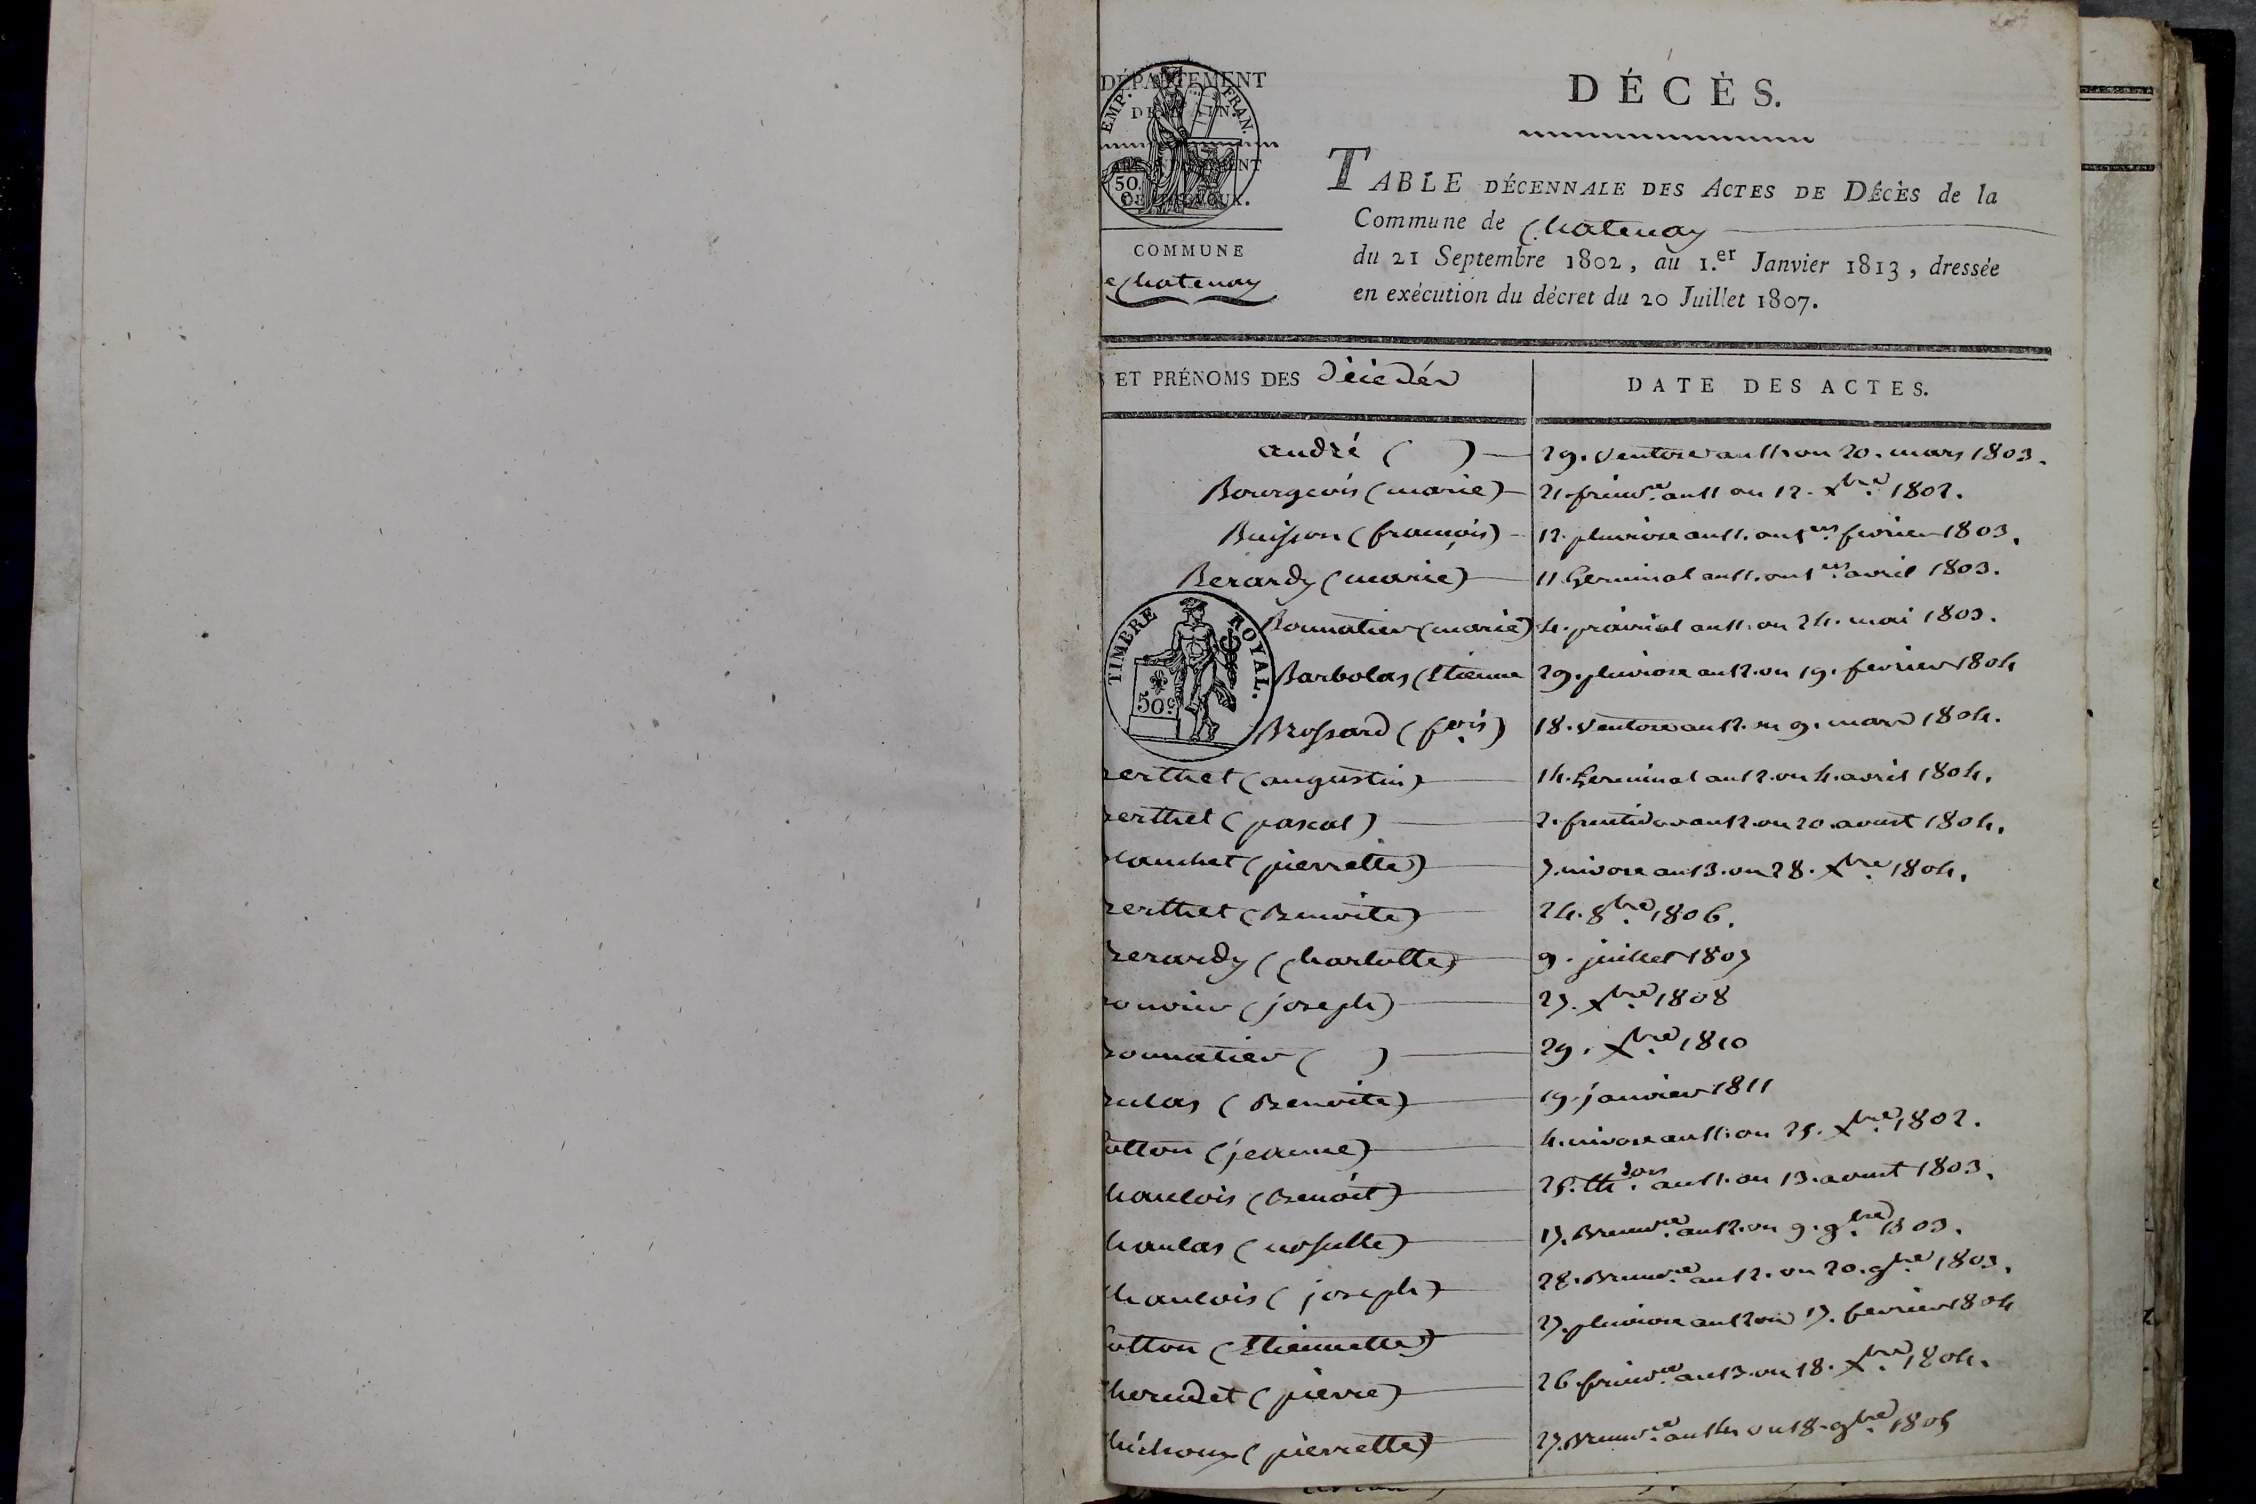 DÉPARTEMENT
DE L'AIN.
EMP. FRAN.
ARRONDISSEMENT
50.
DE TRÉVOUX.
COMMUNE
e Chatenay
DÉCÈS.
TABLE DÉCENNALE DES ACTES DE DÉCÈS de la
Commune de Chatenay
du 21 Septembre 1802, au 1.er Janvier 1813, dressée
en exécution du décret du 20 Juillet 1807.
ET PRÉNOMS DES décédés DATE DES ACTES.
andré ( ) 29. ventose an 11. ou 20. mars 1803.
Bourgeois (marie) 21. frimre. an 11 ou 12. Xbre. 1802.
Buisson (francois) 12. pluviose an 11. ou 1er. fevrier 1803.
Berardy (marie) 11 Germinal an 11. ou 1er. avril 1803.
Bonnatier (marie) 4. prairial an 11. ou 24. mai 1803.
TIMBRE ROYAL.
50c.
Barbolas (Etienne 29. pluviose an 12. ou 19. fevrier 1804
Brossard (fois.) 18. ventose an 12. ou 9. mars 1804.
erthet (augustin) 14. Germinal an 12. ou 4. avril 1804.
erthet (pascal) 2. fructidor an 12. ou 20. aoust 1804.
lanchet (pierrette) 7. nivose an 13. ou 28. Xbre. 1804.
erthet (Benoite) 24. 8bre. 1806.
erardy (Charlotte) 9. juillet 1807
ouvier (joseph) 27. Xbre. 1808
onnatier ( ) 29. Xbre. 1810
ulas (Benoite) 19. janvier 1811
otton (jeanne) 4. nivose an 11. ou 25. Xbre. 1802.
hanlois (Benoît) 25. thdor. an 11. ou 13. aoust 1803.
hanlas (nosette) 17. Brumre. an 12. ou 9. 9bre. 1803.
hanlois (joseph) 28. Brumre. an 12. ou 20. 9bre. 1803.
otton (Etiennette) 27. pluviose an 12 ou 17. fevrier 1804
(pierre) 26. frimre. an 13. ou 18. Xbre. 1804.
(pierrette) 27. Brumre. an 14. ou 18. 9bre. 1805